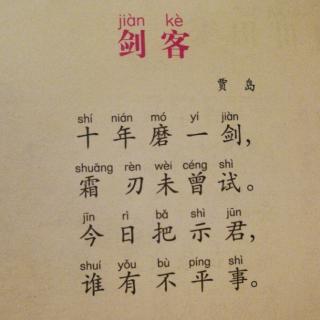 jiàn kè
剑客
贾 岛
shí nián mó yí jiàn
十年磨一剑，
shuāng rèn wèi céng shì
霜刃未曾试。
jīn rì bǎ shì jūn
今日把示君，
shuí yǒu bù píng shì
谁有不平事。